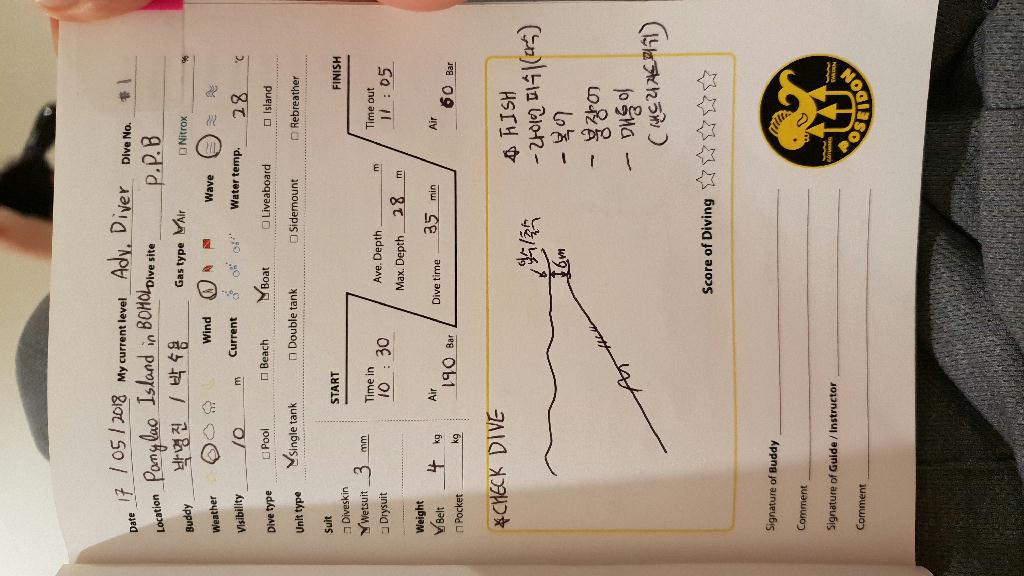 Date 17 / 05 / 2018 My current level Adv. Diver Dive No. #1
Location Panglao Island in BOHOL Dive site P.P.B
Buddy 박명진 / 박수용 Gas type Air Nitrox %
Weather Wind Wave
Visibility 10 m Current Water temp. 28 °C
Dive type Pool Beach Boat Liveaboard Island
Unit type Single tank Double tank Sidemount Rebreather
Suit
Diveskin
Wetsuit 3 mm
Drysuit
Weight
Belt 4 kg
Pocket kg
START
Time in
10 : 30
Air
190 Bar
Ave. Depth m
Max. Depth 28 m
Dive time 35 min
FINISH
Time out
11 : 05
Air
60 Bar
*CHECK DIVE
입수/출수
6m
* FISH
- 라이언피쉬(다수)
- 복어
- 봉장어
- 매퉁이
Score of Diving
Signature of Buddy
Comment
Signature of Guide / Instructor
Comment
POSEIDON